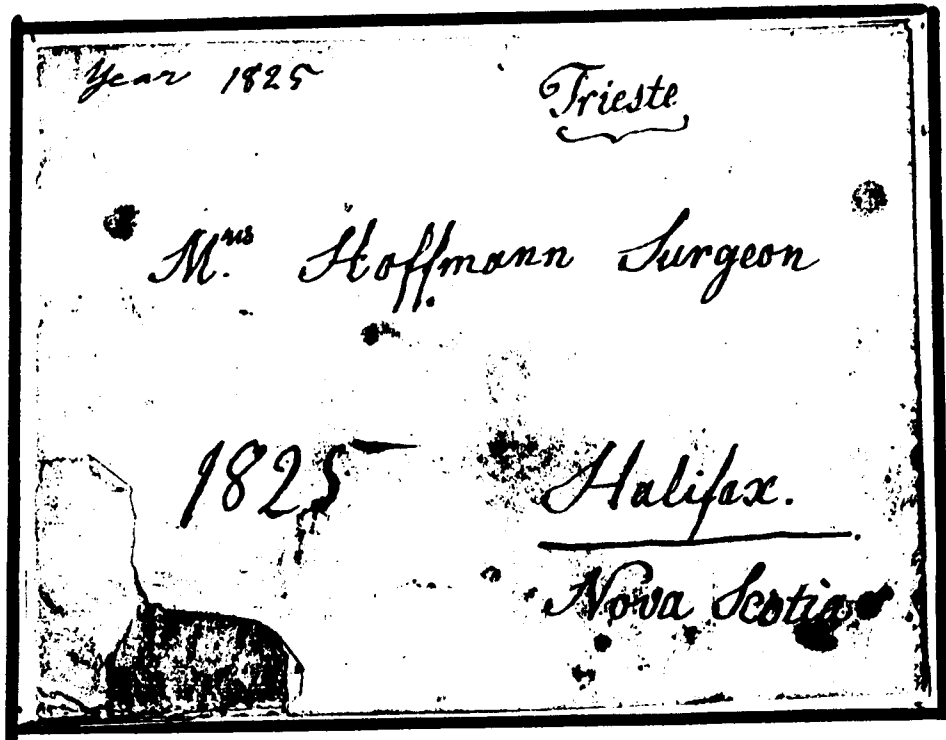 Year 1825
Trieste
Mrs. Hoffmann Surgeon
1825
Halifax.
Nova Scotia